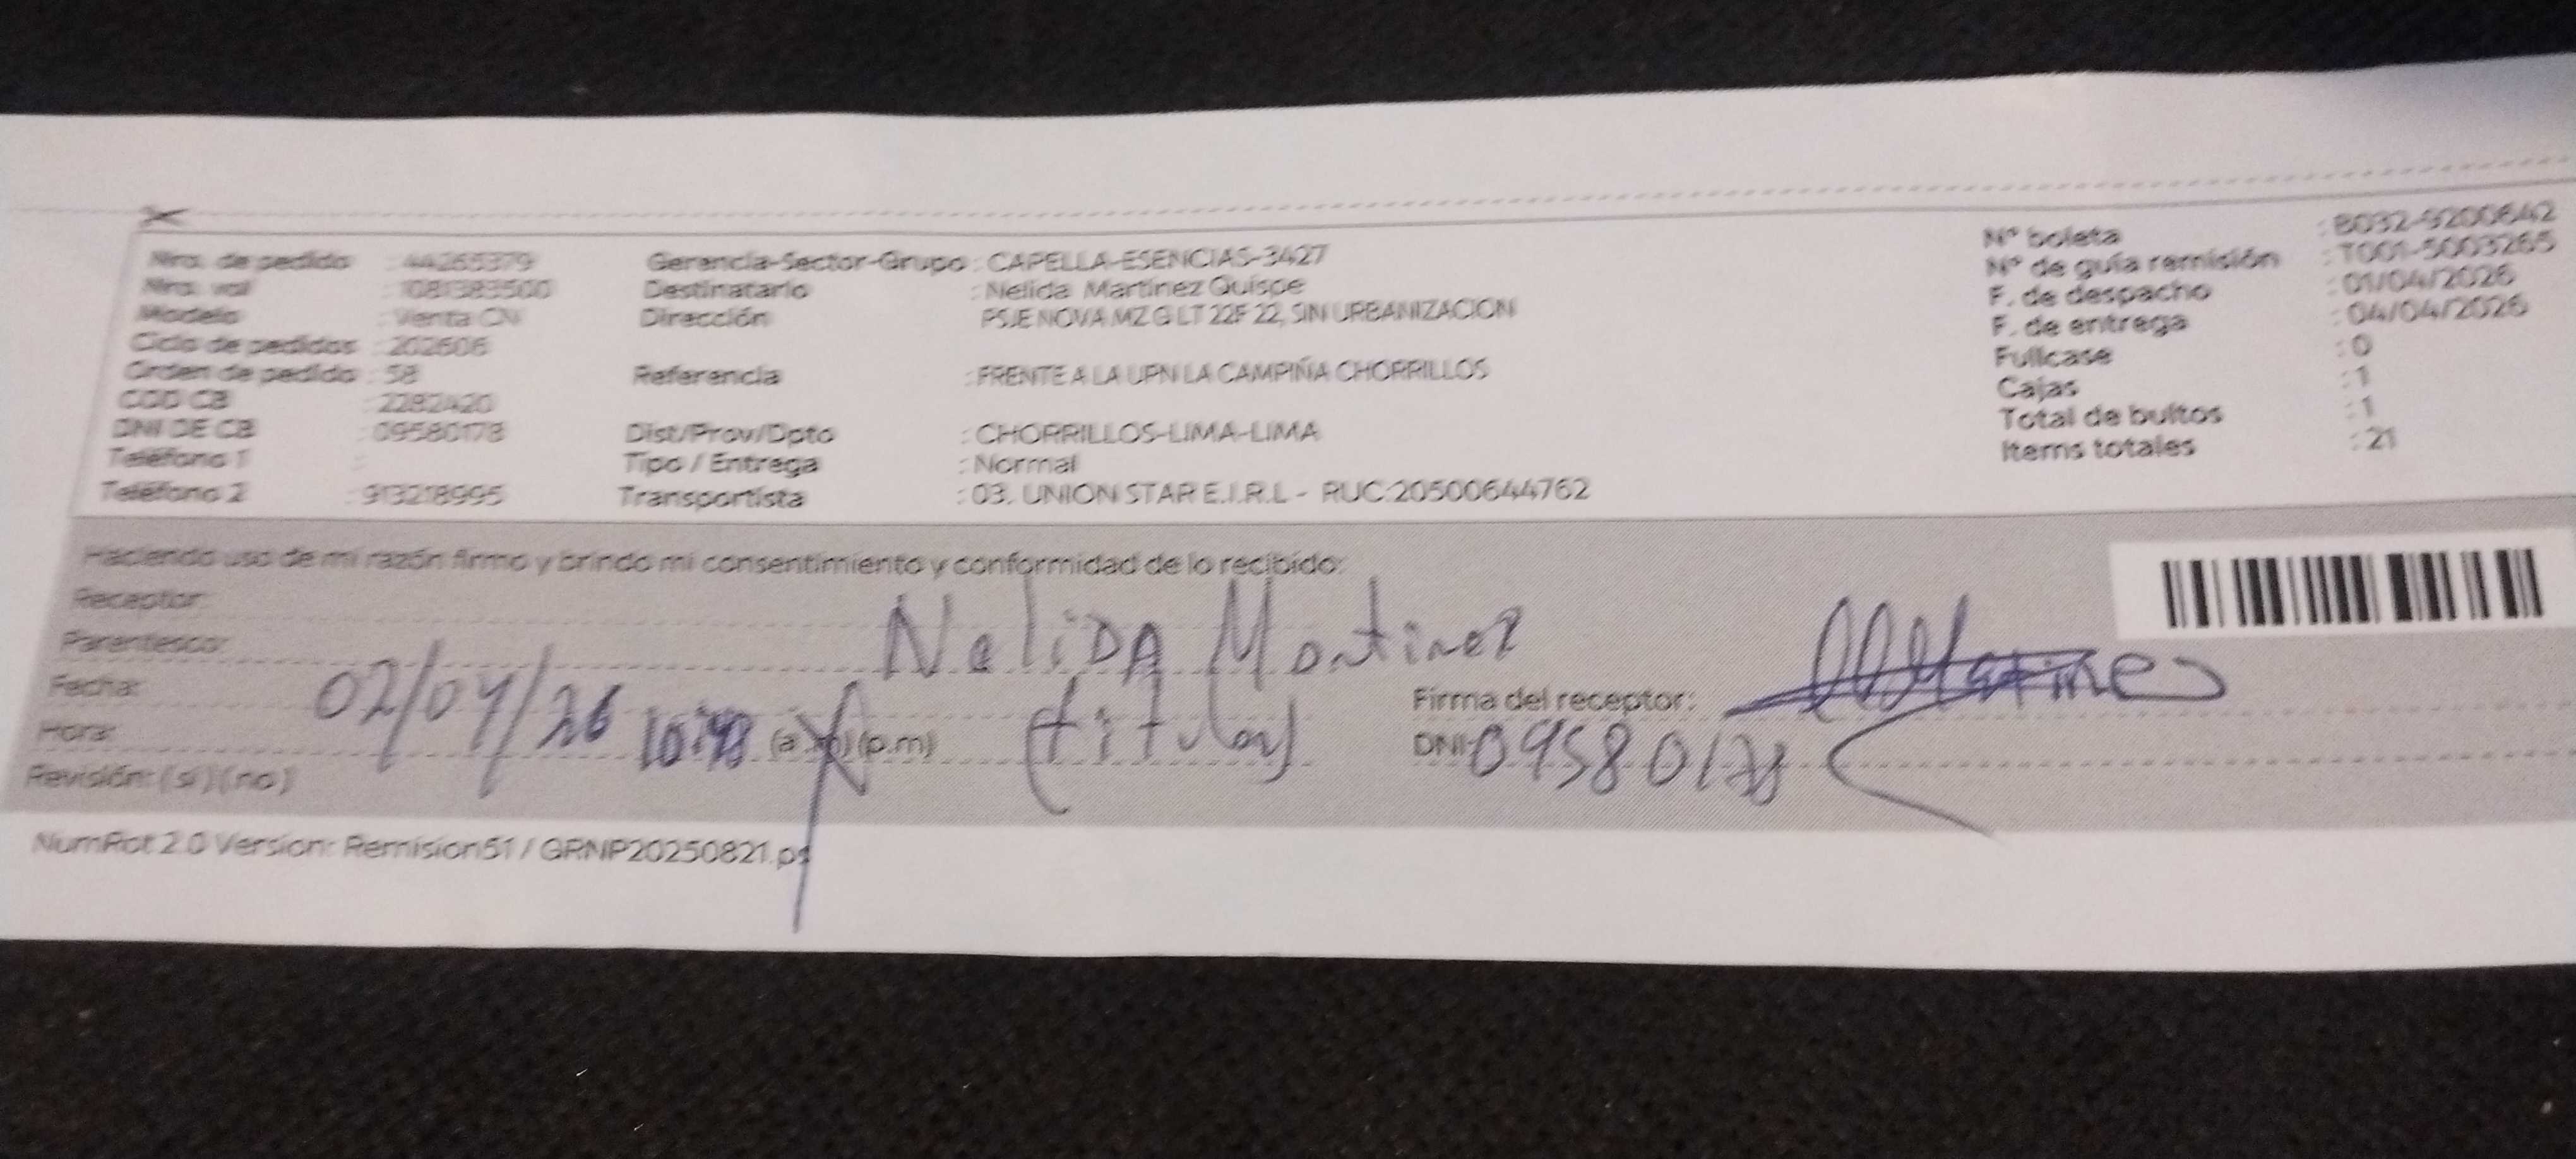 Nro. de pedido : 44265379 Gerencia-Sector-Grupo : CAPELLA-ESENCIAS-3427 N° boleta : B032-9200642
Nro. vol : 1081383500 Destinatario : Nelida Martinez Quispe N° de guía remisión : T001-5003265
Modelo : Venta CN Dirección PSJE NOVA MZ G LT 22F 22, SIN URBANIZACION F. de despacho : 01/04/2026
Ciclo de pedidos : 202606 F. de entrega : 04/04/2026
Orden de pedido : 58 Referencia : FRENTE A LA UPN LA CAMPIÑA CHORRILLOS Fullcase : 0
COD CB : 2282420 Cajas : 1
DNI DE CB : 09580178 Dist/Prov/Dpto : CHORRILLOS-LIMA-LIMA Total de bultos : 1
Teléfono 1 : Tipo / Entrega : Normal Items totales : 21
Teléfono 2 : 913218995 Transportista : 03. UNION STAR E.I.R.L - RUC:20500644762
Haciendo uso de mi razón firmo y brindo mi consentimiento y conformidad de lo recibido:
Receptor:
Parentesco: Nelida Martinez
Fecha: 02/04/26 (titular) Firma del receptor:
Hora: (a.m)(p.m) DNI: 09580178
Revisión: (si)(no)
NumRot 2.0 Version: Remision61 / GRNP20250821.ps